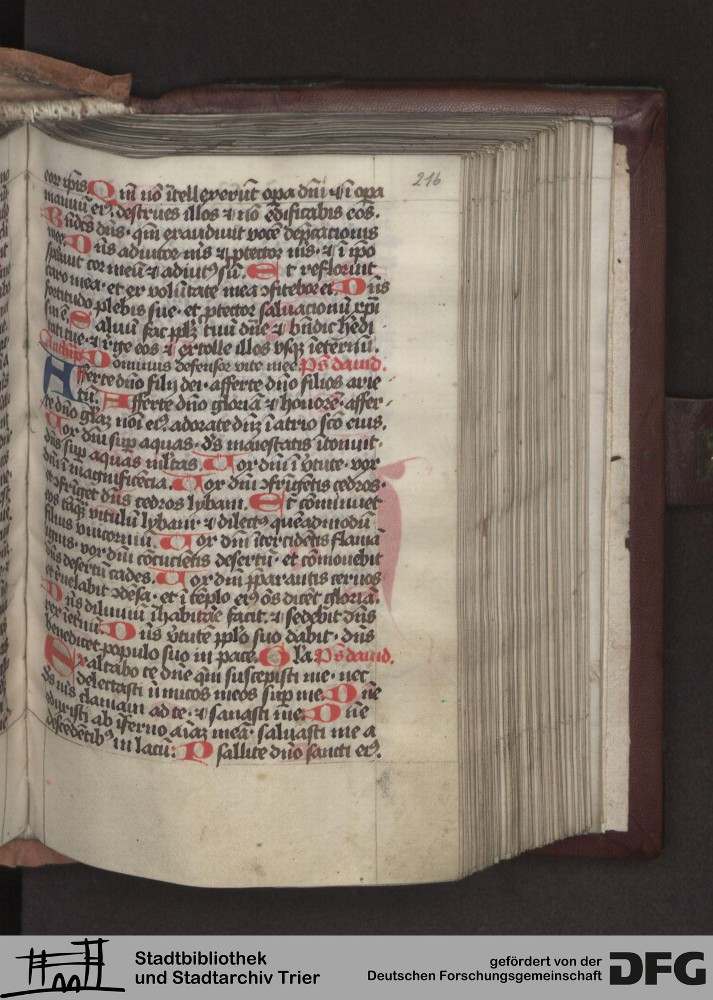 216
eorū ip̄is Q m̄ nō ītellexerūt opa dn̄i ⁊ ī opa
manuū eiꝰ, destrues illos ⁊ nō edificabis eos.
Bn̄dc̄s dn̄s · qm̄ exaudiuit vocē dep̄cationis
mee D n̄s adiutor m̄s ⁊ ꝓtector m̄s · ⁊ ī ip̄o
sꝑauit cor meū ⁊ adiutꝰ sū. E t refloruit
caro mea · et ex volūtate mea ↄfitebor ei. D n̄s
fortitudo plebis sue · et ꝓtector saluacionū xp̄i
sui ē. S aluū fac pplm̄ tuū dn̄e ⁊ bn̄dic hedi
tati tue · ⁊ rege eos ⁊ extolle illos vsqꝫ īeternū.
Antiph D ominus defensor vite mee. Ps dauid.
Afferte dn̄o filij dei · afferte dn̄o filios arie
tū. A fferte dn̄o gloriā ⁊ honorē · affer
te dn̄o gl̄az noī eiꝰ, adorate dn̄z ī atrio sc̄o eius.
V ox dn̄i suꝑ aquas · ds̄ maiestatis ītonuit ·
dn̄s suꝑ aquas ml̄tas. V ox dn̄i ī v̄tute · vox
dn̄i ī magnificēcia. V ox dn̄i ↄfrīgētis cedros ·
et ↄfrīget dn̄s cedros lybani. E t cōminuet
eos tāqꝫ vitulū lybani · ⁊ dilectꝰ quēadmodū
filius vnicorniū. V ox dn̄i ītercidētis flamā
ignis · vox dn̄i cōcuciētis desertū · et cōmouebit
dn̄s desertū cades. V ox dn̄i p̄parantis ceruos
et reuelabit ↄdēsa · et ī tēplo eiꝰ oēs dicēt gloriā.
D n̄s diluuiū īhabitare facit · ⁊ sedebit dn̄s
rex īeternū. D n̄s v̄tutē pplo suo dabit · dn̄s
benedicet populo suo in pace. G l̄a Ps dauid.
Exaltabo te dn̄e qm̄ suscepisti me · nec
delectasti īimicos meos suꝑ me. D n̄e
ds̄ m̄s clamaui ad te · ⁊ sanasti me. D n̄e
eduxisti ab īferno aīaz meā · saluasti me a
descēdētibꝰ in lacū: P sallite dn̄o sancti eiꝰ.
Stadtbibliothek
und Stadtarchiv Trier
gefördert von der
Deutschen Forschungsgemeinschaft DFG